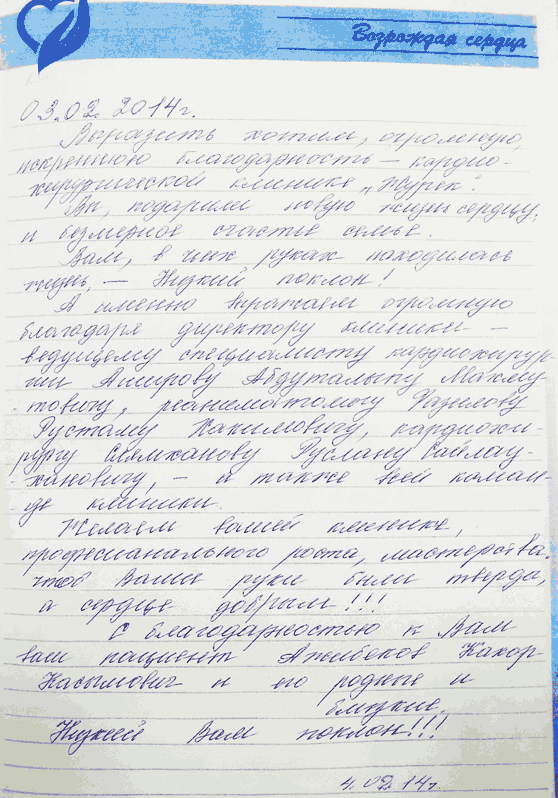 Возрождая сердца
03.02.2014г.
Выразить хотим, огромную,
искреннюю благодарность – кардио-
хирургической клинике „Жүрек".
Вы, подарили новую жизнь сердцу,
и безмерное счастье семье.
Вам, в чьих руках находилась
жизнь, – Низкий поклон!
А именно выражаем огромную
благодаря директору клиники –
ведущему специалисту кардиохирур-
гии Амирову Абдуталыпу Махму-
товичу, реаниматологу Фазылову
Рустаму Хакимовичу, кардиохи-
рургу Руслану Сайлау-
хановичу, – а также всей коман-
де клиники.
Желаем вашей клинике,
профессианального роста, мастерства.
чтоб Ваши руки были тверды,
а сердце добрым!!!
С благодарностью к Вам
ваш пациент Ажибеков Кахор
Касымович и его родные и
близкие.
Низкий Вам поклон!!!
4.02.14г.